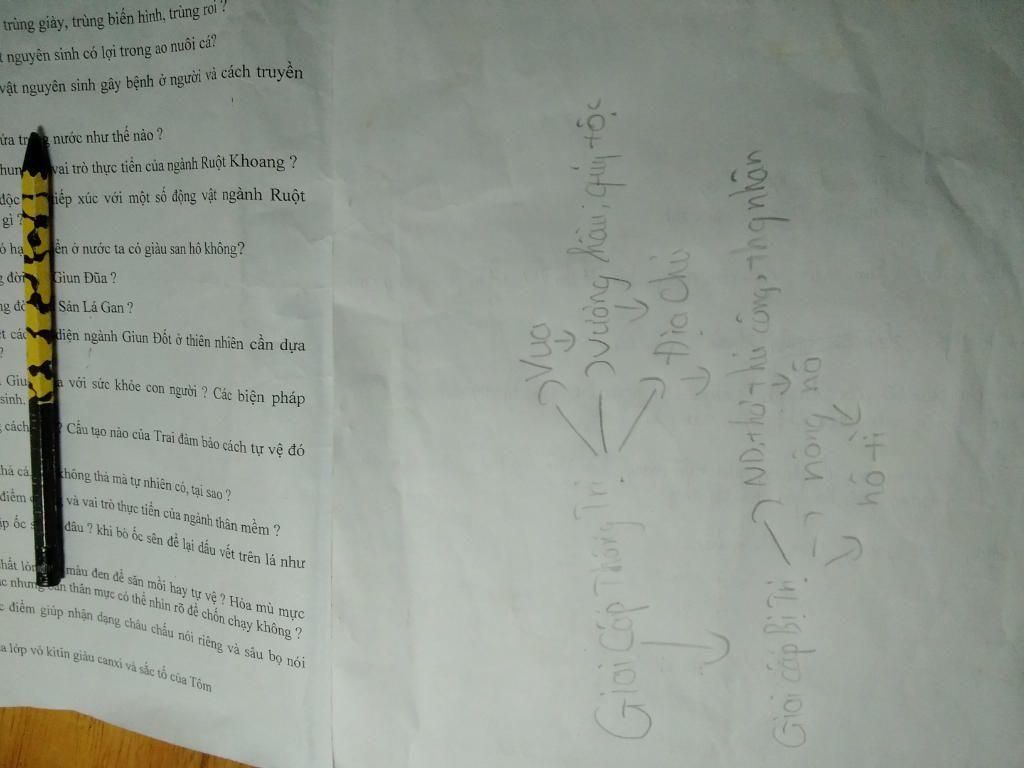 trùng giày, trùng biến hình, trùng roi ?
nguyên sinh có lợi trong ao nuôi cá?
vật nguyên sinh gây bệnh ở người và cách truyền
nước như thế nào ?
vai trò thực tiễn của ngành Ruột Khoang ?
độc tiếp xúc với một số động vật ngành Ruột
gì ?
ở nước ta có giàu san hô không?
Giun Đũa ?
Sán Lá Gan ?
diện ngành Giun Đốt ở thiên nhiên cần dựa
?
với sức khỏe con người ? Các biện pháp
sinh.
cách ? Cấu tạo nào của Trai đảm bảo cách tự vệ đó
thả cá không thả mà tự nhiên có, tại sao ?
điểm và vai trò thực tiễn của ngành thân mềm ?
ốc đâu ? khi bò ốc sên để lại dấu vết trên lá như
màu đen để săn mồi hay tự vệ ? Hỏa mù mực
thân mực có thể nhìn rõ để chốn chạy không ?
điểm giúp nhận dạng châu chấu nói riêng và sâu bọ nói
lớp vỏ kitin giàu canxi và sắc tố của Tôm
Giai Cấp Thống Trị
Vua
Vương hầu, quý tộc
Địa Chủ
Giai cấp Bị Trị
ND, thợ thủ công, thg nhân
nông nô
nô tì